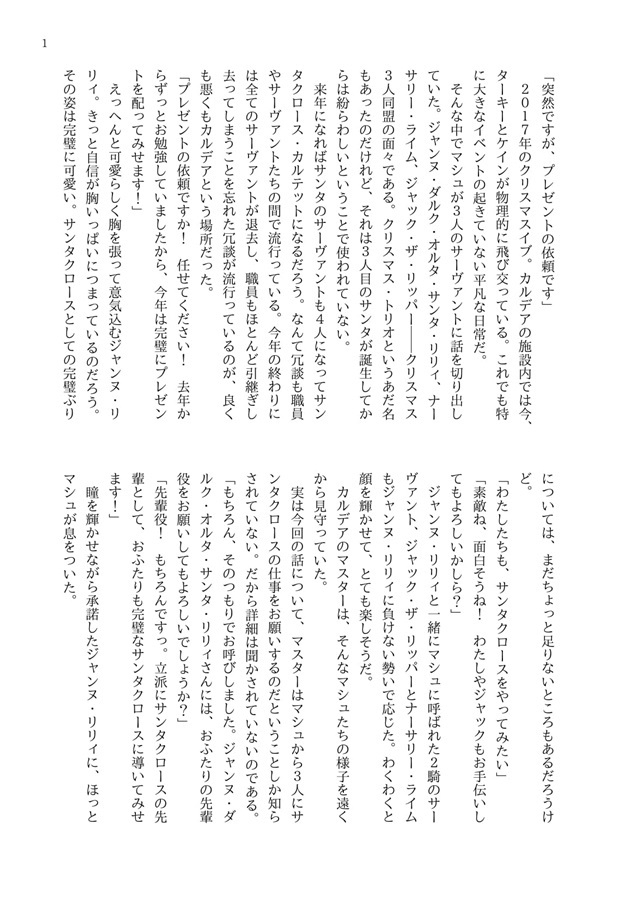 1
「突然ですが、プレゼントの依頼です」
　２０１７年のクリスマスイブ。カルデアの施設内では今、
ターキーとケインが物理的に飛び交っている。これでも特
に大きなイベントの起きていない平凡な日常だ。
　そんな中でマシュが３人のサーヴァントに話を切り出し
ていた。ジャンヌ・ダルク・オルタ・サンタ・リリィ、ナー
サリー・ライム、ジャック・ザ・リッパー――クリスマス
３人同盟の面々である。クリスマス・トリオというあだ名
もあったのだけれど、それは３人目のサンタが誕生してか
らは紛らわしいということで使われていない。
　来年になればサンタのサーヴァントも４人になってサン
タクロース・カルテットになるだろう。なんて冗談も職員
やサーヴァントたちの間で流行っている。今年の終わりに
は全てのサーヴァントが退去し、職員もほとんど引継ぎし
去ってしまうことを忘れた冗談が流行っているのが、良く
も悪くもカルデアという場所だった。
「プレゼントの依頼ですか！　任せてください！　去年か
らずっとお勉強していましたから、今年は完璧にプレゼン
トを配ってみせます！」
　えっへんと可愛らしく胸を張って意気込むジャンヌ・リ
リィ。きっと自信が胸いっぱいにつまっているのだろう。
その姿は完璧に可愛い。サンタクロースとしての完璧ぶり
については、まだちょっと足りないところもあるだろうけ
ど。
「わたしたちも、サンタクロースをやってみたい」
「素敵ね、面白そうね！　わたしやジャックもお手伝いし
てもよろしいかしら？」
　ジャンヌ・リリィと一緒にマシュに呼ばれた２騎のサー
ヴァント、ジャック・ザ・リッパーとナーサリー・ライム
もジャンヌ・リリィに負けない勢いで応じた。わくわくと
顔を輝かせて、とても楽しそうだ。
　カルデアのマスターは、そんなマシュたちの様子を遠く
から見守っていた。
　実は今回の話について、マスターはマシュから３人にサ
ンタクロースの仕事をお願いするのだということしか知ら
されていない。だから詳細は聞かされていないのである。
「もちろん、そのつもりでお呼びしました。ジャンヌ・ダ
ルク・オルタ・サンタ・リリィさんには、おふたりの先輩
役をお願いしてもよろしいでしょうか？」
「先輩役！　もちろんですっ。立派にサンタクロースの先
輩として、おふたりも完璧なサンタクロースに導いてみせ
ます！」
　瞳を輝かせながら承諾したジャンヌ・リリィに、ほっと
マシュが息をついた。